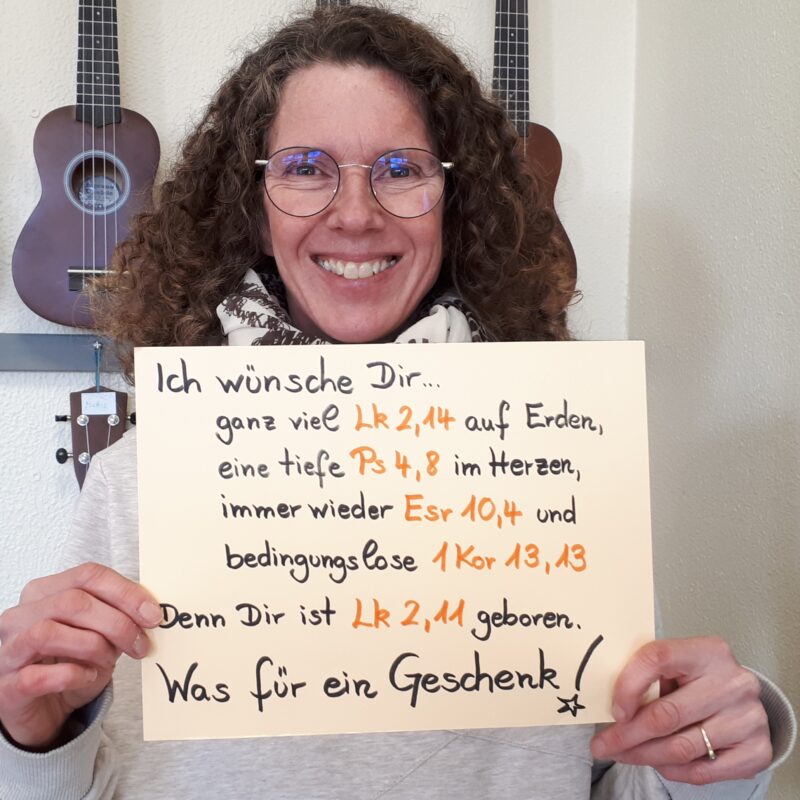 Ich wünsche Dir...
ganz viel Lk 2,14 auf Erden,
eine tiefe Ps 4,8 im Herzen,
immer wieder Esr 10,4 und
bedingungslose 1 Kor 13,13
Denn Dir ist Lk 2,11 geboren.
Was für ein Geschenk!